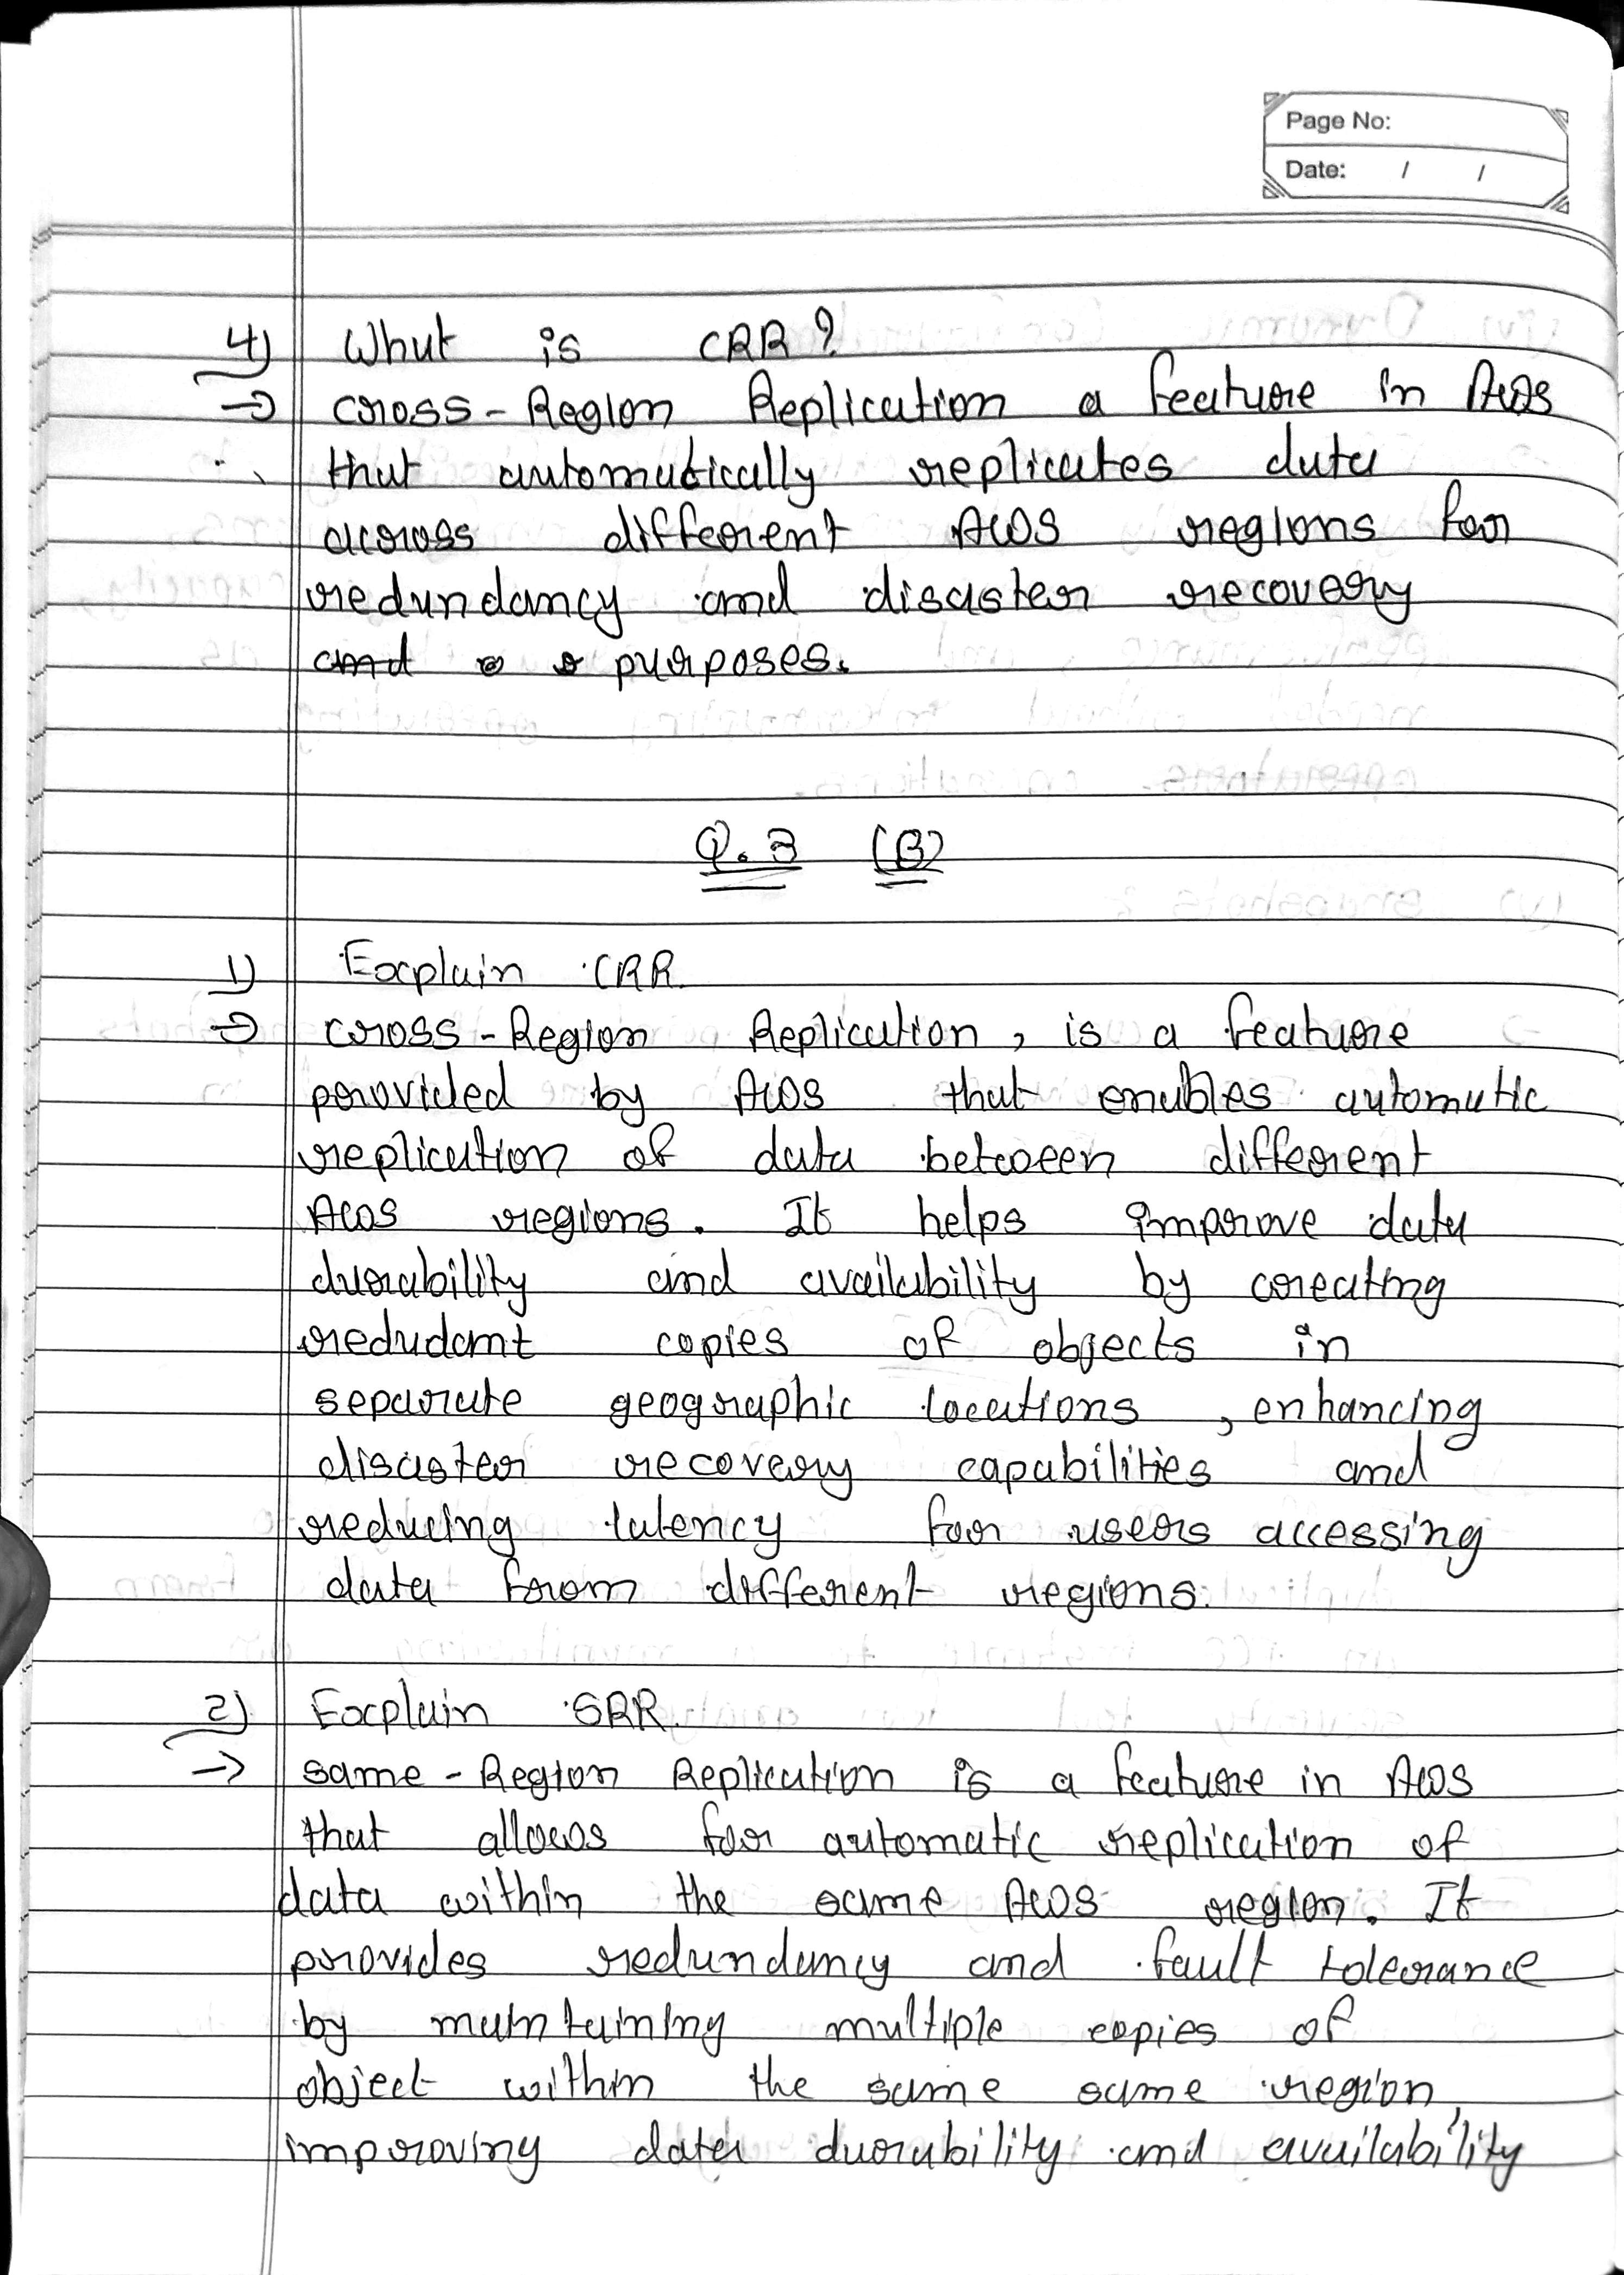 Page No:
Date: / /
4) What is CRR?
→ cross-Region Replication a feature in AWS
that automatically replicates data
across different AWS regions for
redundancy and disaster recovery
and purposes.
Q.3 (B)
1) Explain CRR.
→ cross-Region Replication, is a feature
provided by AWS that enables automatic
replication of data between different
AWS regions. It helps improve data
durability and availability by creating
redudant copies of objects in
separate geographic locations, enhancing
disaster recovery capabilities and
reducing latency for users accessing
data from different regions.
2) Explain SRR.
→ same-Region Replication is a feature in AWS
that allows for automatic replication of
data within the same AWS region. It
provides redundancy and fault tolerance
by maintaining multiple copies of
object within the same same region,
improving data durability and availability